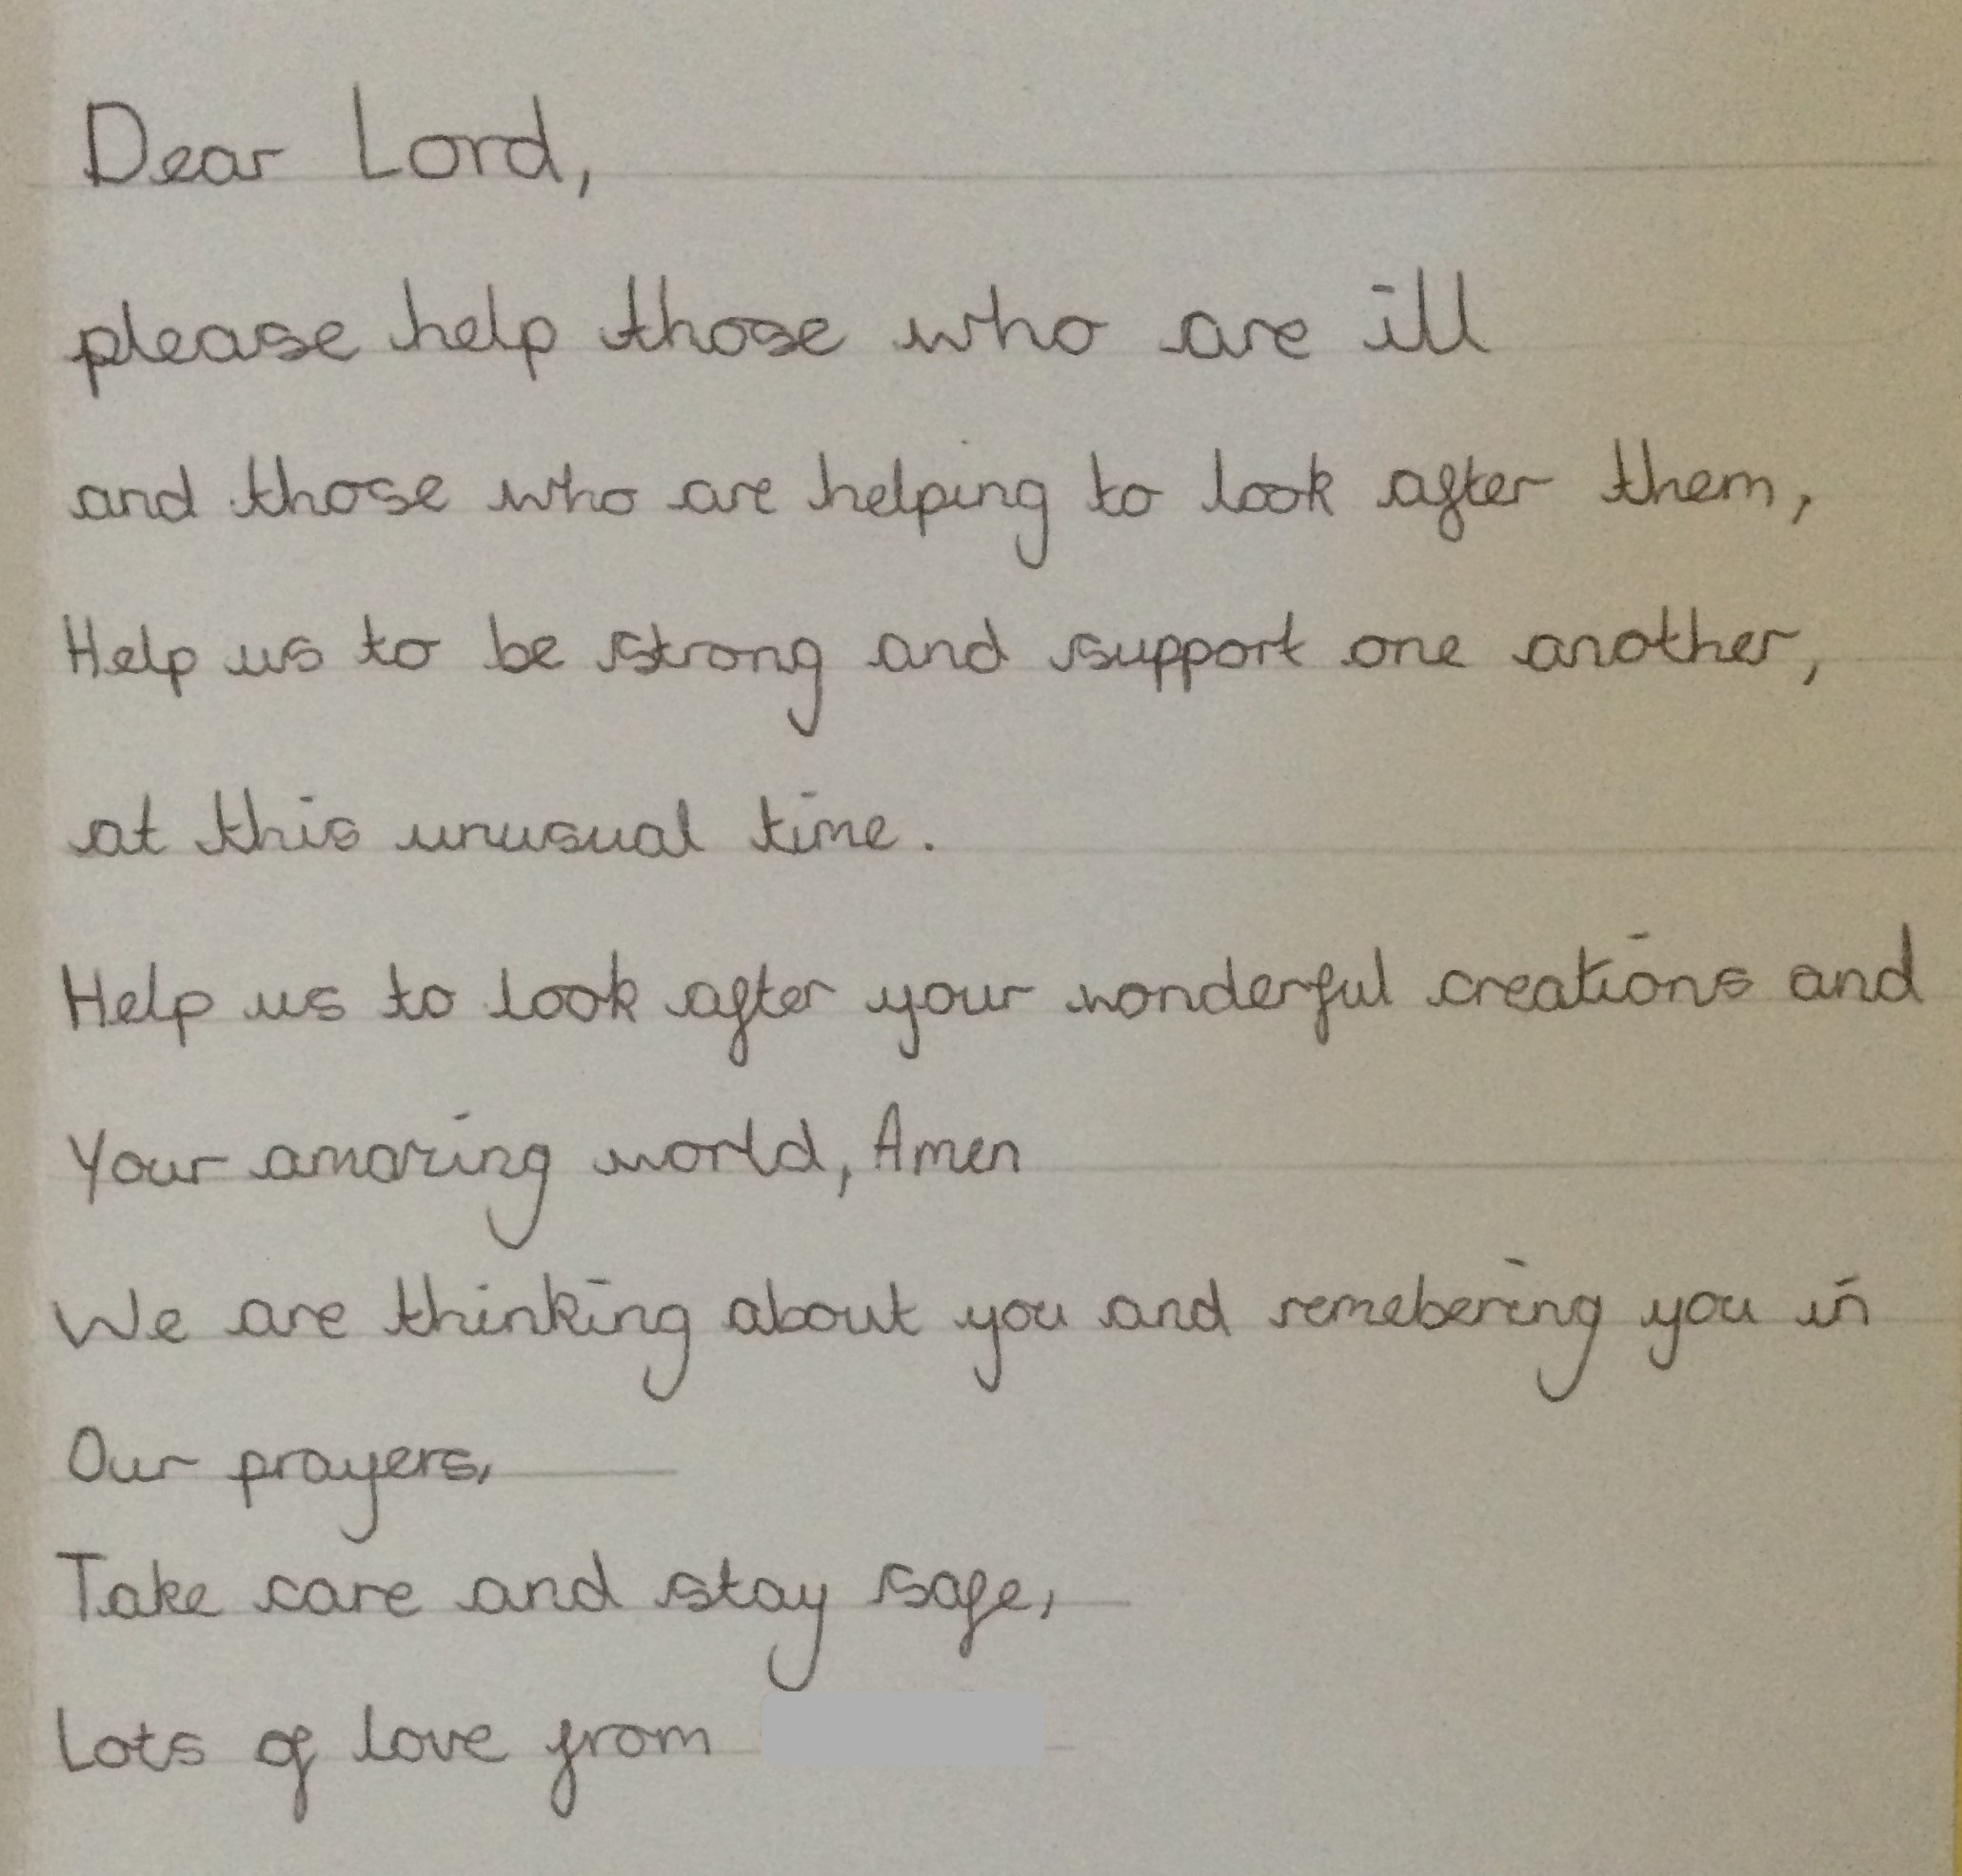 Dear Lord,
please help those who are ill
and those who are helping to look after them,
Help us to be strong and support one another,
at this unusual time.
Help us to look after your wonderful creations and
Your amazing world, Amen
We are thinking about you and remebering you in
Our prayers,
Take care and stay safe,
Lots of love from